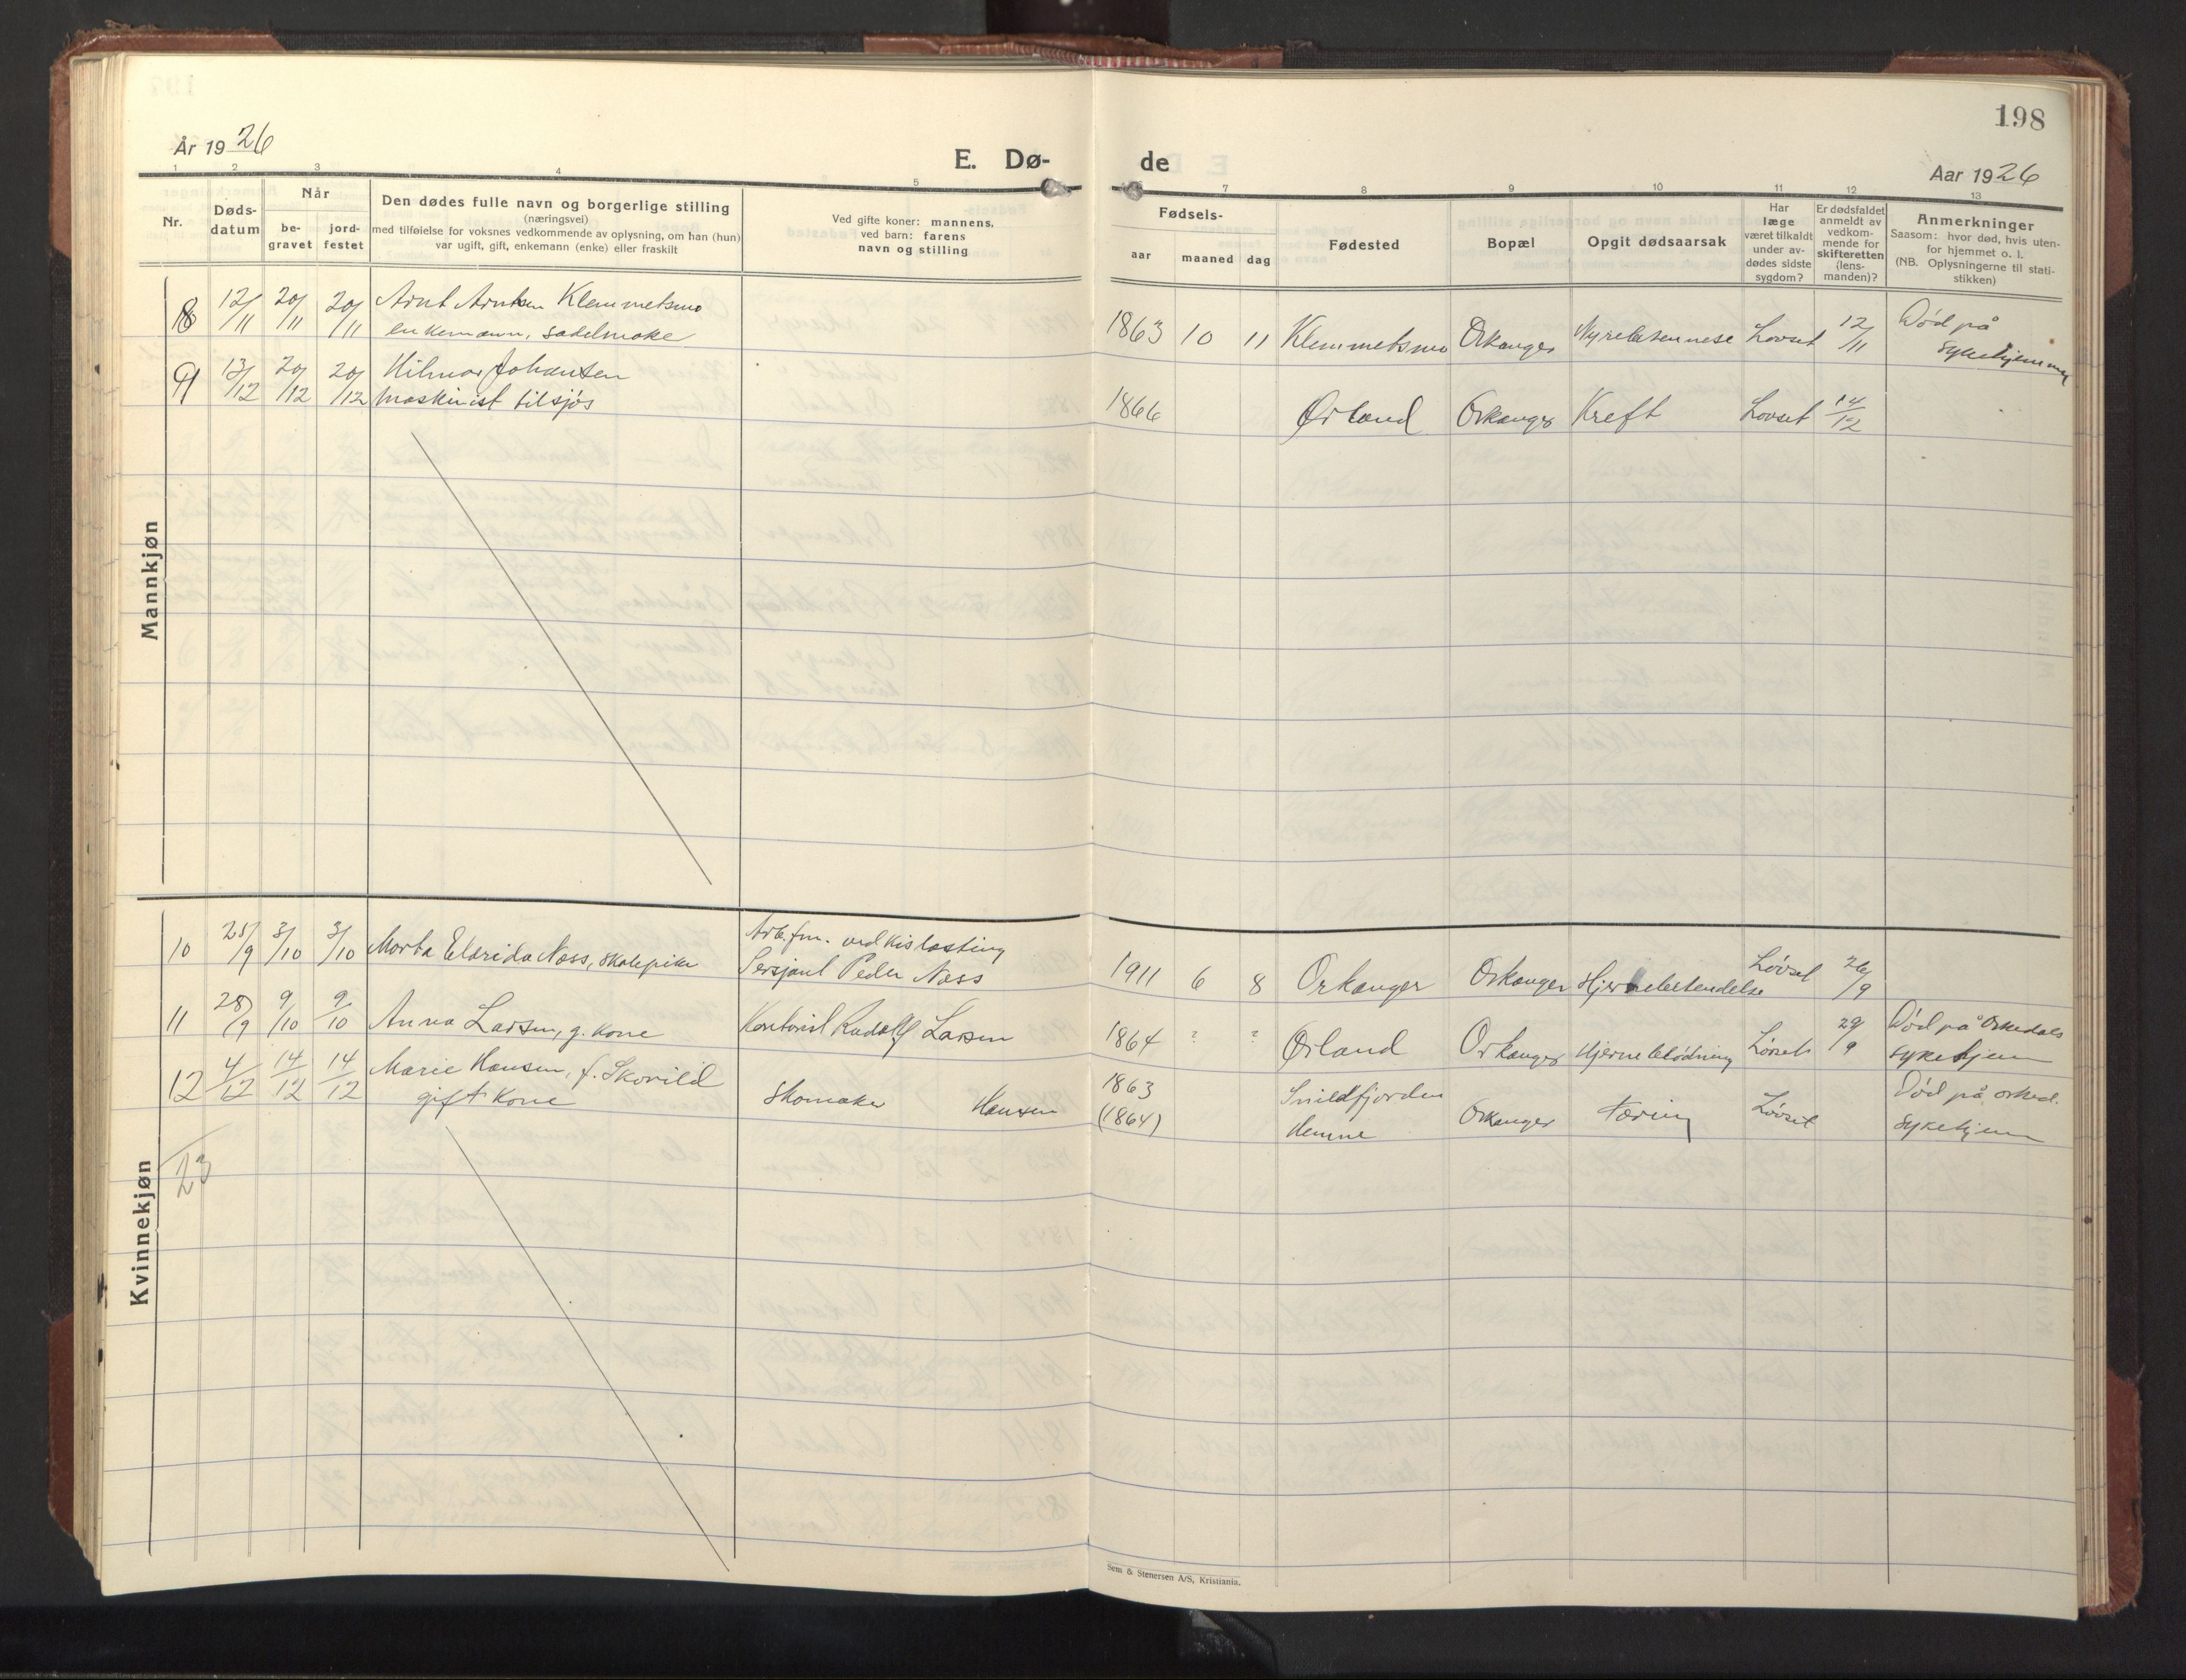 198
År 1926
E. Dø-
de
Aar 1926
1 2 3 4 5
6 7 8 9 10 11 12 13
Nr.
Døds-
datum
Når
be-
gravet
jord-
festet
Den dødes fulle navn og borgerlige stilling
(næringsvei)
med tilføielse for voksnes vedkommende av oplysning, om han (hun)
var ugift, gift, enkemann (enke) eller fraskilt
Ved gifte koner: mannens,
ved barn: farens
navn og stilling
Fødsels-
aar
maaned
dag
Fødested
Bopæl
Opgit dødsaarsak
Har
læge
været tilkaldt
under av-
dødes sidste
sygdom?
Er dødsfaldet
anmeldt av
vedkom-
mende for
skifteretten
(lens-
manden)?
Anmerkninger
Saasom: hvor død, hvis uten-
for hjemmet o. l.
(NB. Oplysningerne til stati-
stikken)
Mannkjøn
8 12/11 20/11 20/11 Arnt Arntsen Klemmetsmo
enkemann, sadelmaker
1863 10 11 Klemmetsmo Orkanger Løvset 12/11 Død på
sykehjemmet
9 13/12 20/12 20/12 Hilmar Johansen
maskinist tilsjøs
1866 Ørland Orkanger Kreft Løvset 14/12
Kvinnekjøn
10 25/9 3/10 3/10 Marta Eldrida Næss, skolepike
Arb.fm. ved kislasting
Sersjant Peder Næss
1911 6 8 Orkanger Orkanger Hjernebetendelse Løvset 26/9
11 28/9 9/10 9/10 Anna Larsen, g. kone
Kontorist Rudolf Larsen
1864 ? ? Ørland Orkanger Hjerneblødning Løvset 29/9 Død på Orkedals
sykehjem
12 4/12 14/12 14/12 Marie Hansen, f. Skovild
gift kone
Skomaker Hansen
1863
(1864)
Snildfjorden
Hemne
Orkanger Tæring Løvset Død på orked.
sykehjem
Sem & Stenersen A/S, Kristiania.